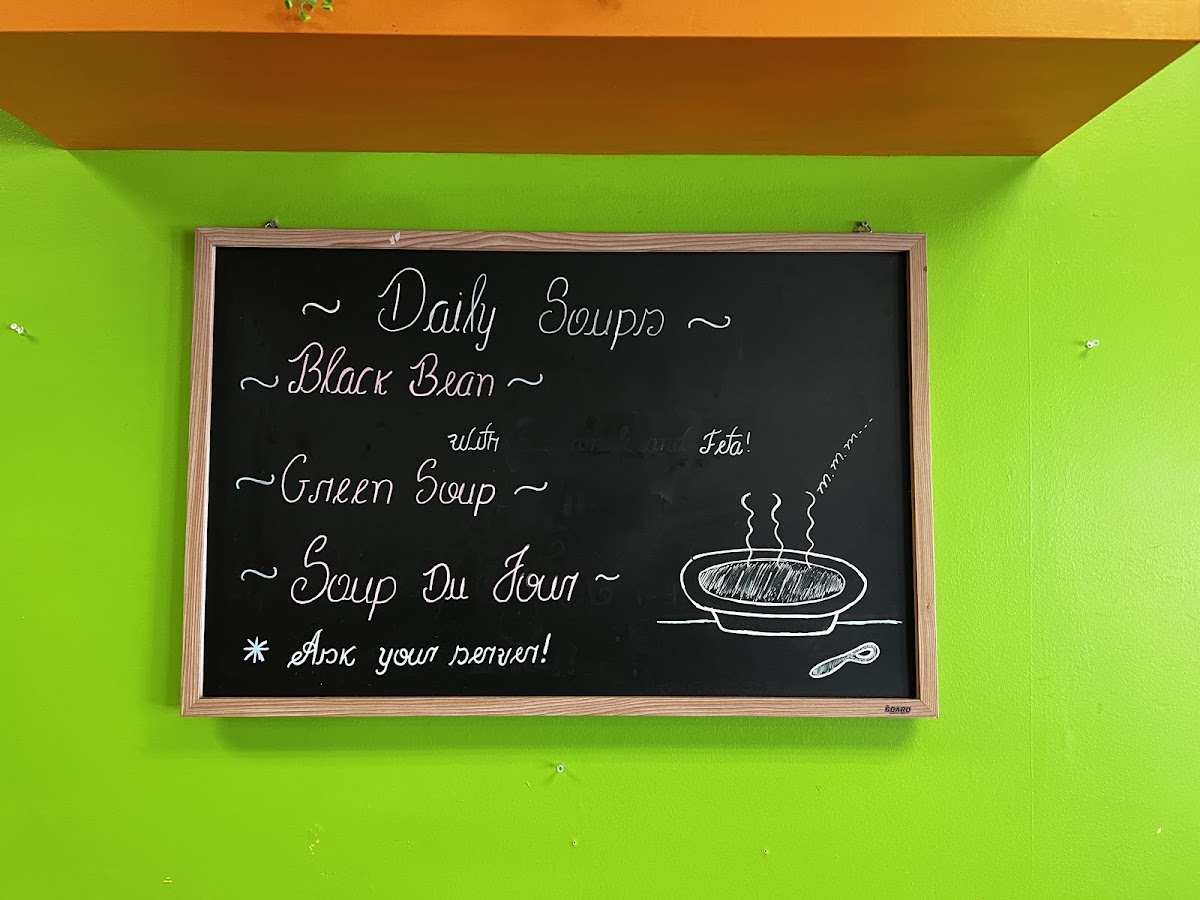 ~ Daily Soups ~
~ Black Bean ~
with and Feta!
~ Green Soup ~
~ Soup Du Jour ~
* Ask your server!
m.m.m.m...
BOARD